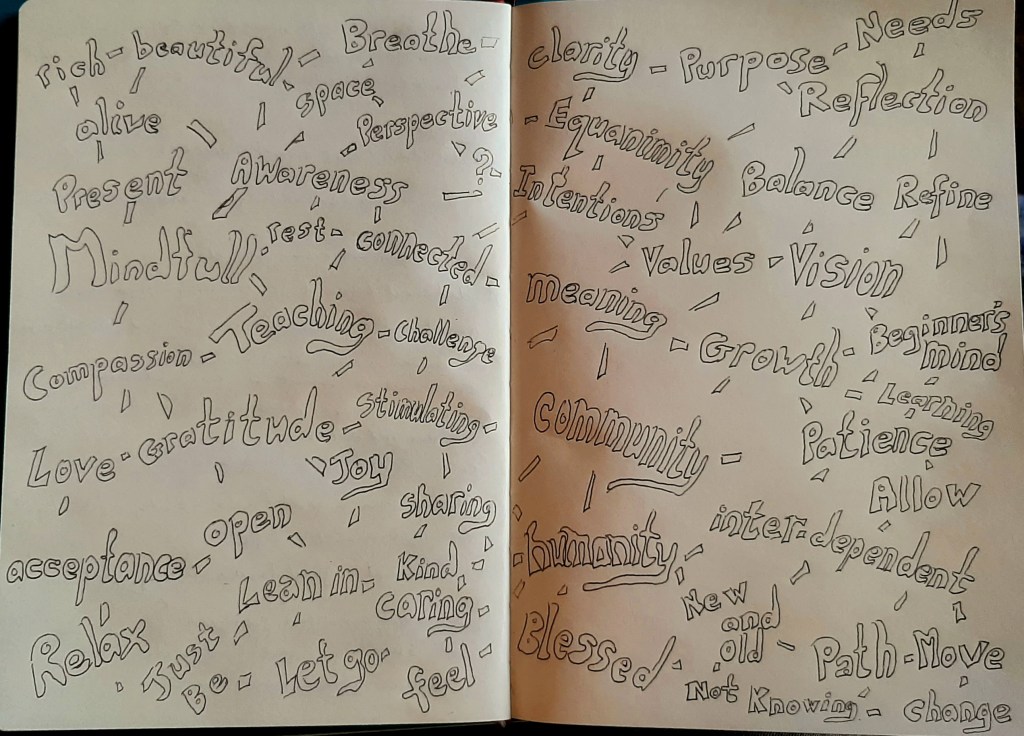 rich - beautiful - Breathe -
space
alive
Perspective
Present Awareness - ?
Mindfull - rest - connected -
Compassion - Teaching - Challenge
Love - Gratitude - Stimulating -
Joy
sharing
acceptance - open
Lean in - Kind -
caring -
Relax
Just Be - Let go - feel -
clarity - Purpose - Needs
Reflection
- Equanimity
Balance Refine
Intentions
Values - Vision
meaning - Growth - Beginner's mind
- Learning
Community -
Patience
Allow
- humanity - inter-dependent
Blessed - New and old - Path - Move
Not Knowing - change